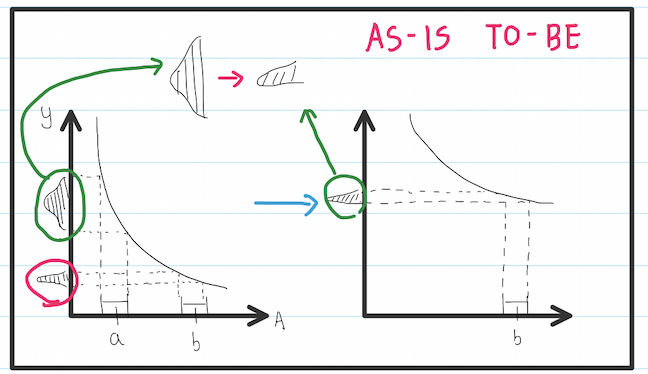 AS-IS TO-BE
y
A
a
b
b